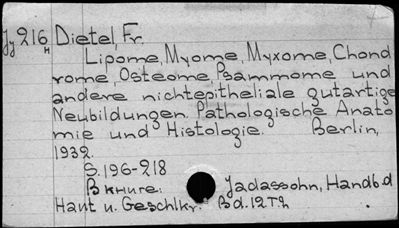 Jy 216н Dietel, Fr.
Lipome, Myome, Myxome, Chond
rome, Osteome, Psammome und
andere nichtepitheliale gutartige
Neubildungen. Pathologische Anato
mie und Histologie. Berlin,
1932.
S. 196-218
В книге: Jadassohn, Handb.d
Haut u. Geschlkr. Bd. 12 Th